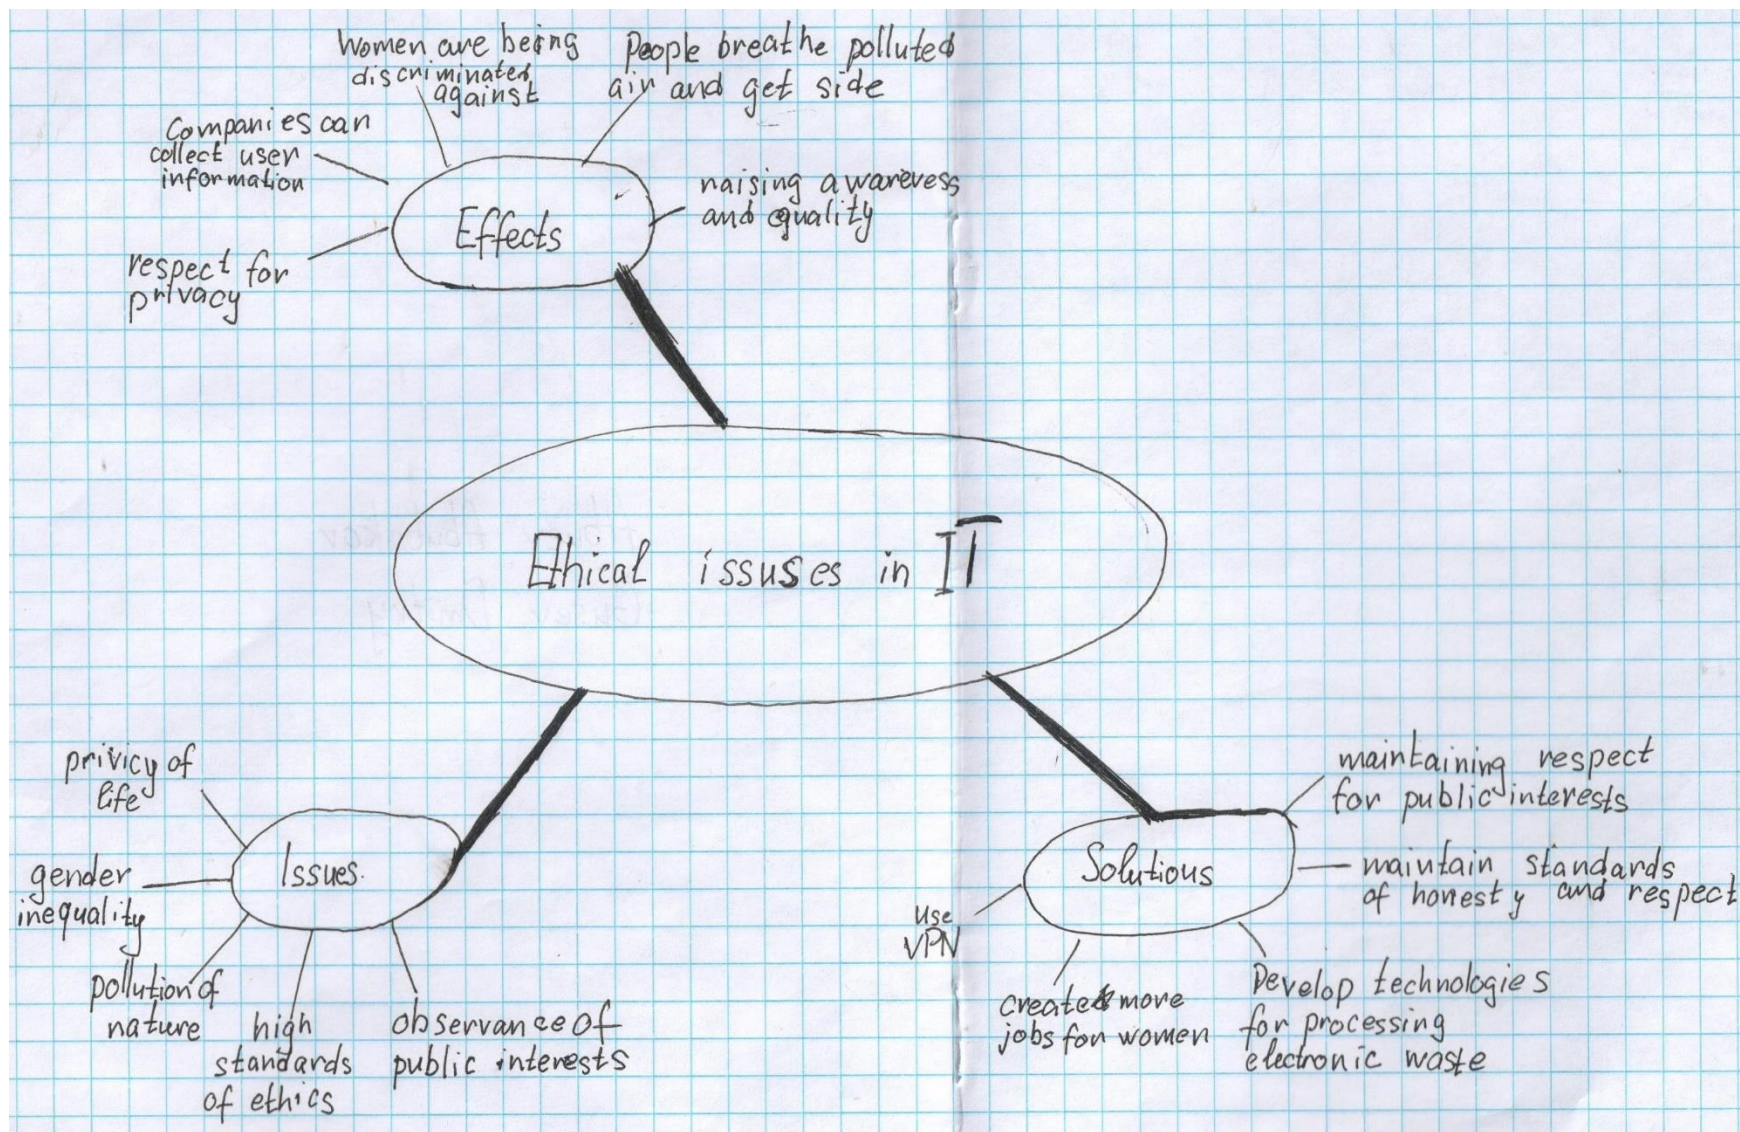 Women are being
discriminated
against
People breathe polluted
air and get side
Companies can
collect user
information
raising awareness
and equality
Effects
respect for
privacy
Ethical issuses in IT
privicy of
life
gender
inequality
pollution of
nature
high
standards
of ethics
observance of
public interests
Issues.
Solutious
maintaining respect
for public interests
maintain standards
of honesty and respect
Use
VPN
create more
jobs for women
Develop technologies
for processing
electronic waste